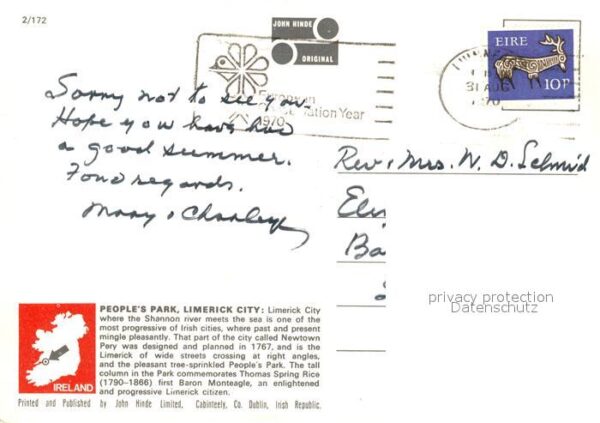 2/172
JOHN HINDE
ORIGINAL
European
Conservation Year
1970
31 AUG
EIRE
10P
Sorry not to see you.
Hope you have had
a good summer.
Fond regards.
Mary & Charley
Rev & Mrs. W. D. Schmid
privacy protection:
Datenschutz
PEOPLE'S PARK, LIMERICK CITY: Limerick City
where the Shannon river meets the sea is one of the
most progressive of Irish cities, where past and present
mingle pleasantly. That part of the city called Newtown
Pery was designed and planned in 1767, and is the
Limerick of wide streets crossing at right angles,
and the pleasant tree-sprinkled People's Park. The tall
column in the Park commemorates Thomas Spring Rice
(1790–1866) first Baron Monteagle, an enlightened
and progressive Limerick citizen.
IRELAND
Printed and Published by John Hinde Limited, Cabinteely, Co. Dublin, Irish Republic.